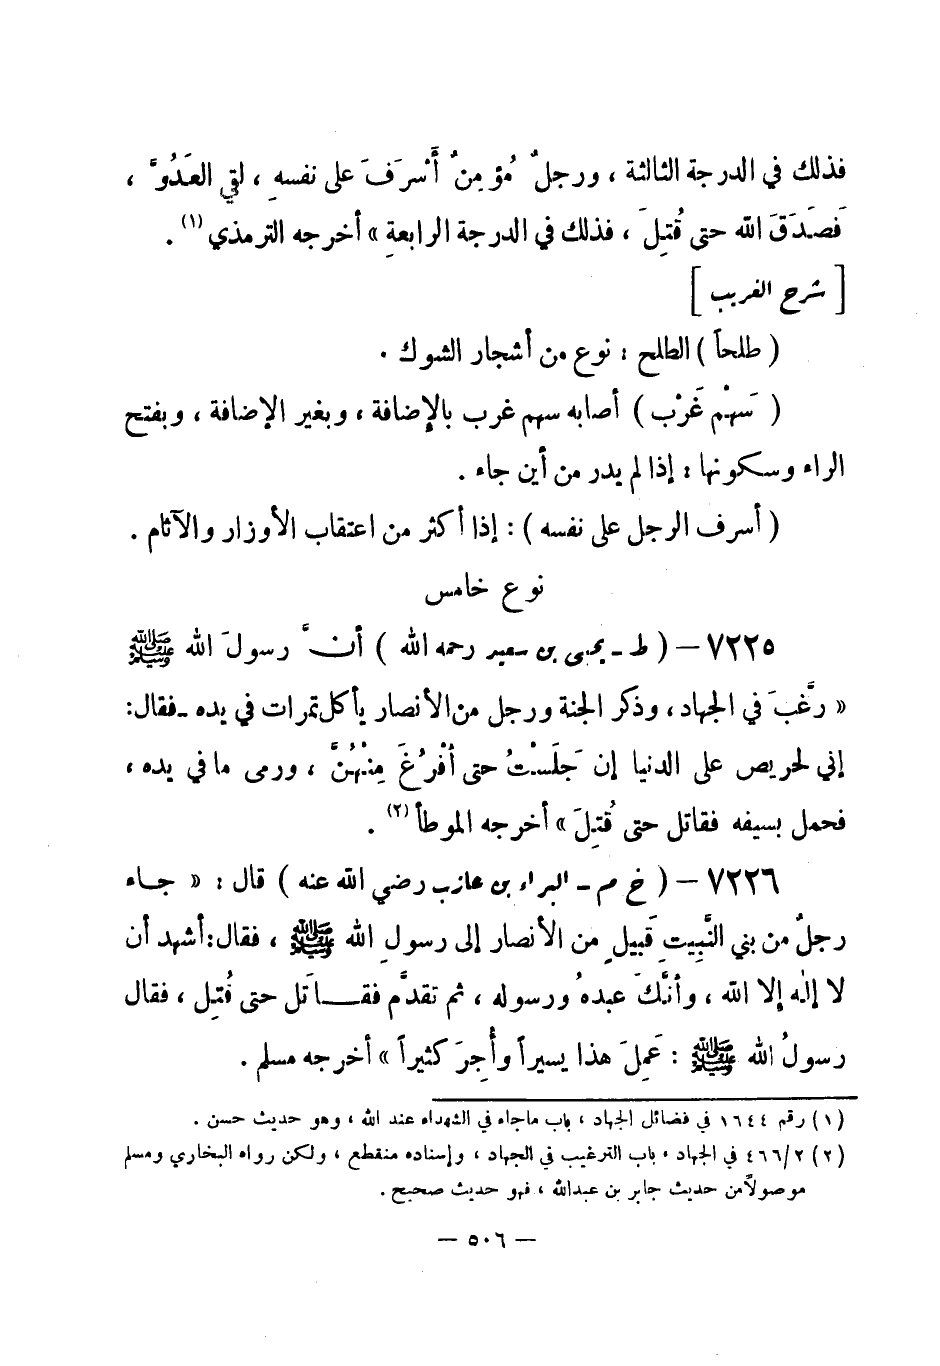 فذلك في الدرجة الثالثة ، ورجلٌ مُؤمِنٌ أَسْرَفَ على نفسهِ ، لقي العَدُوَّ ،
فَصَدَقَ الله حتى قُتِلَ ، فذلك في الدرجة الرابعةِ » أخرجه الترمذي (١) .
[ شرح الغريب ]
( طلحاً ) الطلح : نوع من أشجار الشوك .
( سَهْم غَرْب ) أصابه سهم غرب بالإضافة ، وبغير الإضافة ، وبفتح
الراء وسكونها : إذا لم يدر من أين جاء .
( أسرف الرجل على نفسه ) : إذا أكثر من اعتقاب الأوزار والآثام .
نوع خامس
٧٢٢٥ – ( ط - يحيى بن سعيد رحمه الله ) أنَّ رسولَ الله ﷺ
« رغَّبَ في الجهاد ، وذكر الجنة ورجل من الأنصار يأكل تمرات في يده - فقال :
إني لحريص على الدنيا إن جَلَسْتُ حتى أفْرُغَ مِنْهُنَّ ، ورمى ما في يده ،
فحمل بسيفه فقاتل حتى قُتِلَ » أخرجه الموطأ (٢) .
٧٢٢٦ – ( خ م - البراء بن عازب رضي الله عنه ) قال : « جاء
رجلٌ من بني النَّبِيتِ قَبيلٍ من الأنصار إلى رسولِ الله ﷺ ، فقال : أشهد أن
لا إله إلا الله ، وأنَّكَ عبدهُ ورسوله ، ثم تقدَّم فقاتَل حتى قُتِل ، فقال
رسولُ الله ﷺ : عَمِلَ هذا يسيراً وأُجِرَ كثيراً » أخرجه مسلم .
(١) رقم ١٦٤٤ في فضائل الجهاد ، باب ماجاء في الشهداء عند الله ، وهو حديث حسن .
(٢) ٤٦٦/٢ في الجهاد ، باب الترغيب في الجهاد ، وإسناده منقطع ، ولكن رواه البخاري ومسلم
موصولاً من حديث جابر بن عبدالله ، فهو حديث صحيح .
– ٥٠٦ –